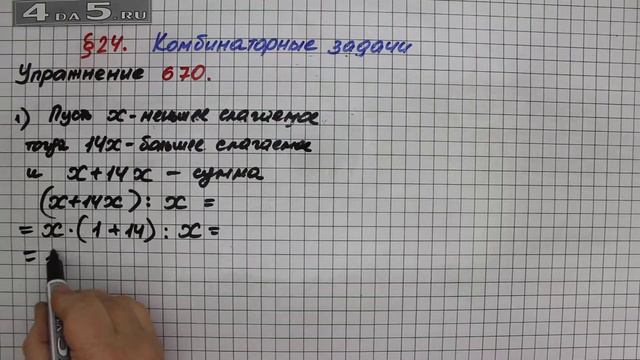 4 DA 5.RU
§24. Комбинаторные задачи
Упражнение 670.
1) Пусть x - меньшее слагаемое
тогда 14x - большее слагаемое
и x + 14x - сумма
(x+14x) : x =
= x · (1 + 14) : x =
=